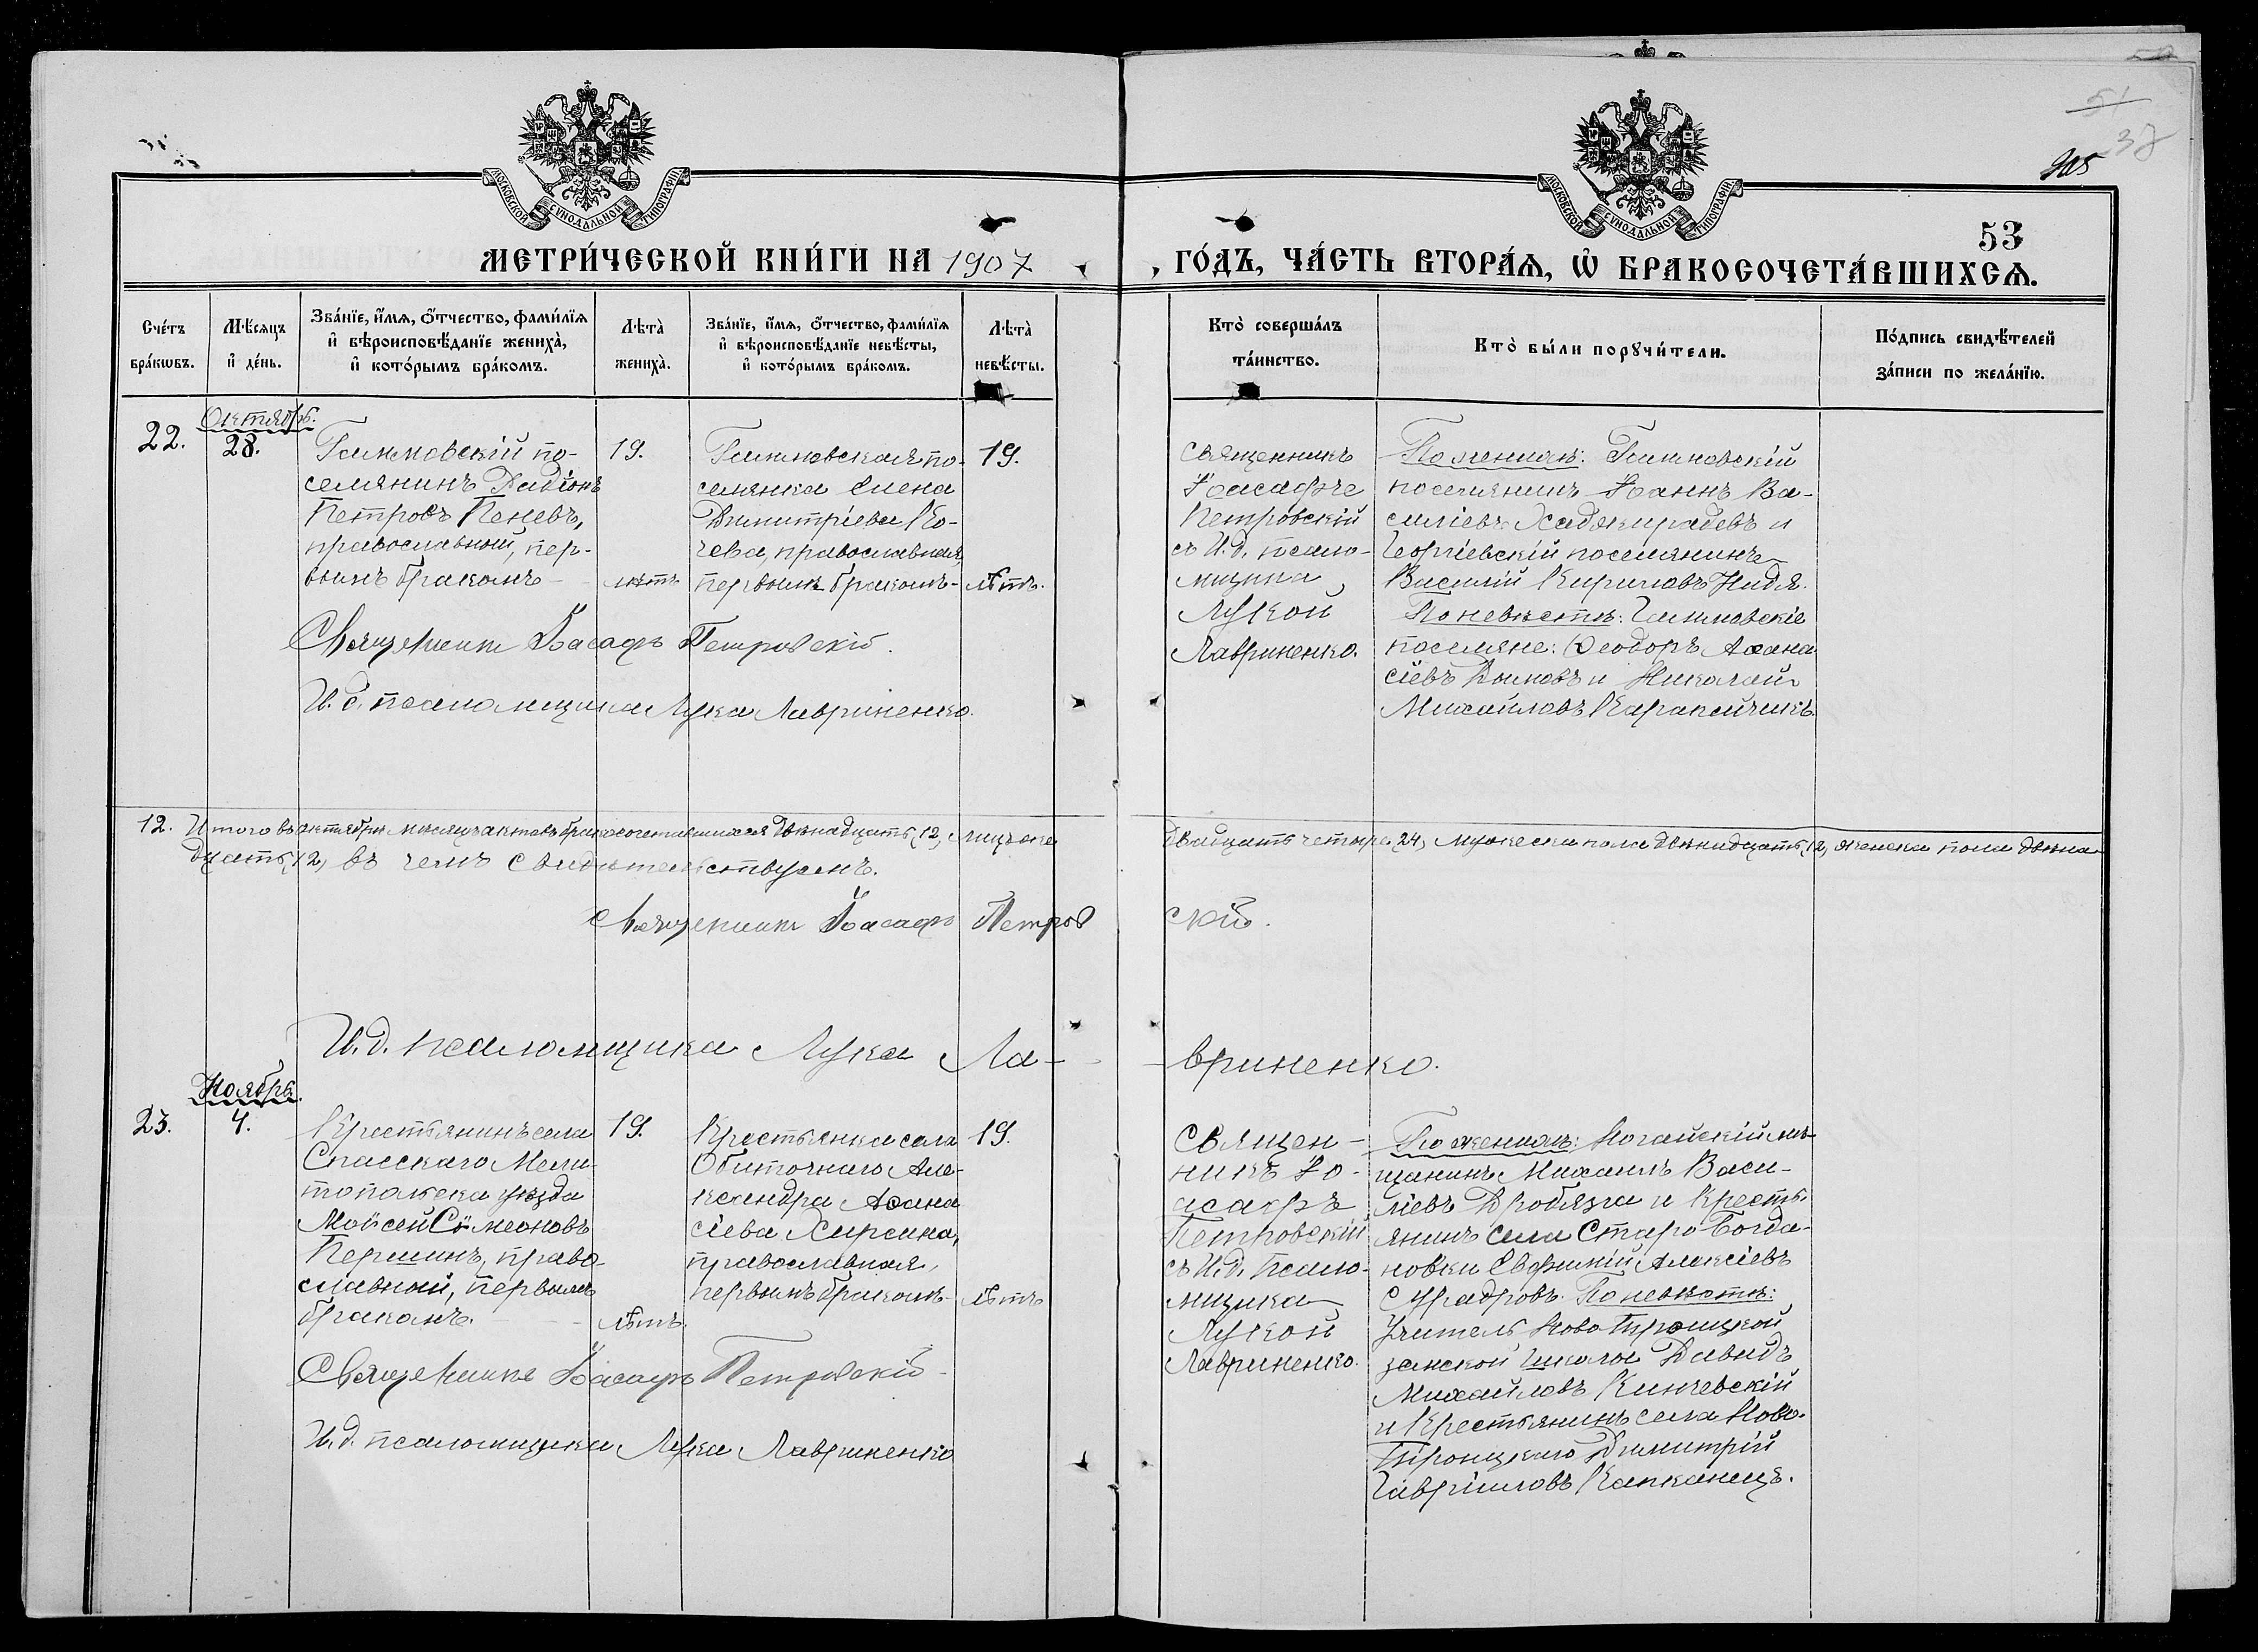 51
37
МОСКОВСКОЙ СѴНОДАЛЬНОЙ ТИПОГРАФІИ
МОСКОВСКОЙ СѴНОДАЛЬНОЙ ТИПОГРАФІИ
53
МЕТРИ́ЧЕСКОЙ КНИ́ГИ НА 1907 ГО́ДЪ, ЧА́СТЬ ВТОРА́Ѧ, Ѡ҆ БРАКОСОЧЕТА́ВШИХСѦ.
Сче́тъ
бра́кѡвъ.
Мѣ́сяцъ
и҆ де́нь.
Зва́нїе, и҆́мѧ, ѻ҆́тчество, фами́лїѧ
и҆ вѣроисповѣ́данїе жениха̀,
и҆ кото́рымъ бра́комъ.
Лѣта̀
жениха̀.
Зва́нїе, и҆́мѧ, ѻ҆́тчество, фами́лїѧ
и҆ вѣроисповѣ́данїе невѣ́сты,
и҆ кото́рымъ бра́комъ.
Лѣта̀
невѣ́сты.
Кто̀ соверша́лъ
та́инство.
Кто̀ бы́ли порꙋчи́тели.
По́дпись свидѣ́телей
за́писи по жела́нїю.
Октябрь.
22.
28.
Гамовскій по-
селянинъ Радіонъ
Петровъ Пеневъ,
православный, пер-
вымъ бракомъ
19.
лѣтъ
Гамовская по-
селянка Елена
Димитріева Ко-
чева, православная,
первымъ бракомъ-
19.
лѣтъ.
Священникъ
Іоасафъ
Петровскій
съ И.д. псало-
мщика
Лукой
Лавриненко.
По женихѣ: Гамовскій
поселянинъ Іоаннъ Ва-
силіевъ Хаджирадевъ и
Георгіевскій поселянинъ
Василій Кириловъ Надя.
По невѣстѣ: Гамовскіе
поселяне: Ѳеодоръ Аѳана
сіевъ Доиновъ и Николай
Михайловъ Карапейчикъ.
Священникъ Іоасафъ Петровскій.
И.д. псаломщика Лука Лавриненко.
12. Итого въ октябрѣ мѣсяцѣ актовъ бракосочетавшихся двѣнадцать (12), лицъ же двадцать четыре (24), мужеска пола двѣнадцать (12), женска пола двѣна-
дцать (12), въ чемъ свидѣтельствуемъ.
Священникъ Іоасафъ Петровскій.
И.д. псаломщика Лука Ла-вриненко.
Ноябрь.
23.
4.
Крестьянинъ села
Спасскаго Мели-
топольска уѣзда
Моисей Сѵмеоновъ
Першинъ, право-
славный, первымъ
бракомъ.
19.
лѣтъ.
Крестьянка села
Обиточнаго Але-
ксандра Аѳана
сіева Хирсина,
православная,
первымъ бракомъ
19.
лѣтъ
Священ-
никъ Іо-
асафъ
Петровскій
съ И.д. псало-
мщика
Лукой
Лавриненко.
По женихѣ: Ногайскій мѣ-
щанинъ Михаилъ Васи-
ліевъ Дробязга и кресть-
янинъ села Старо-Богда-
новки Евфимій Алексіевъ
По невѣстѣ:
Учитель Ново Троицкой
земской школы Давидъ
Михайловъ Кинчевскій
и крестьянинъ села Ново-
Троицкаго Димитрій
Гавріиловъ Капканецъ.
Священникъ Іоасафъ Петровскій
И.д. псаломщика Лука Лавриненко